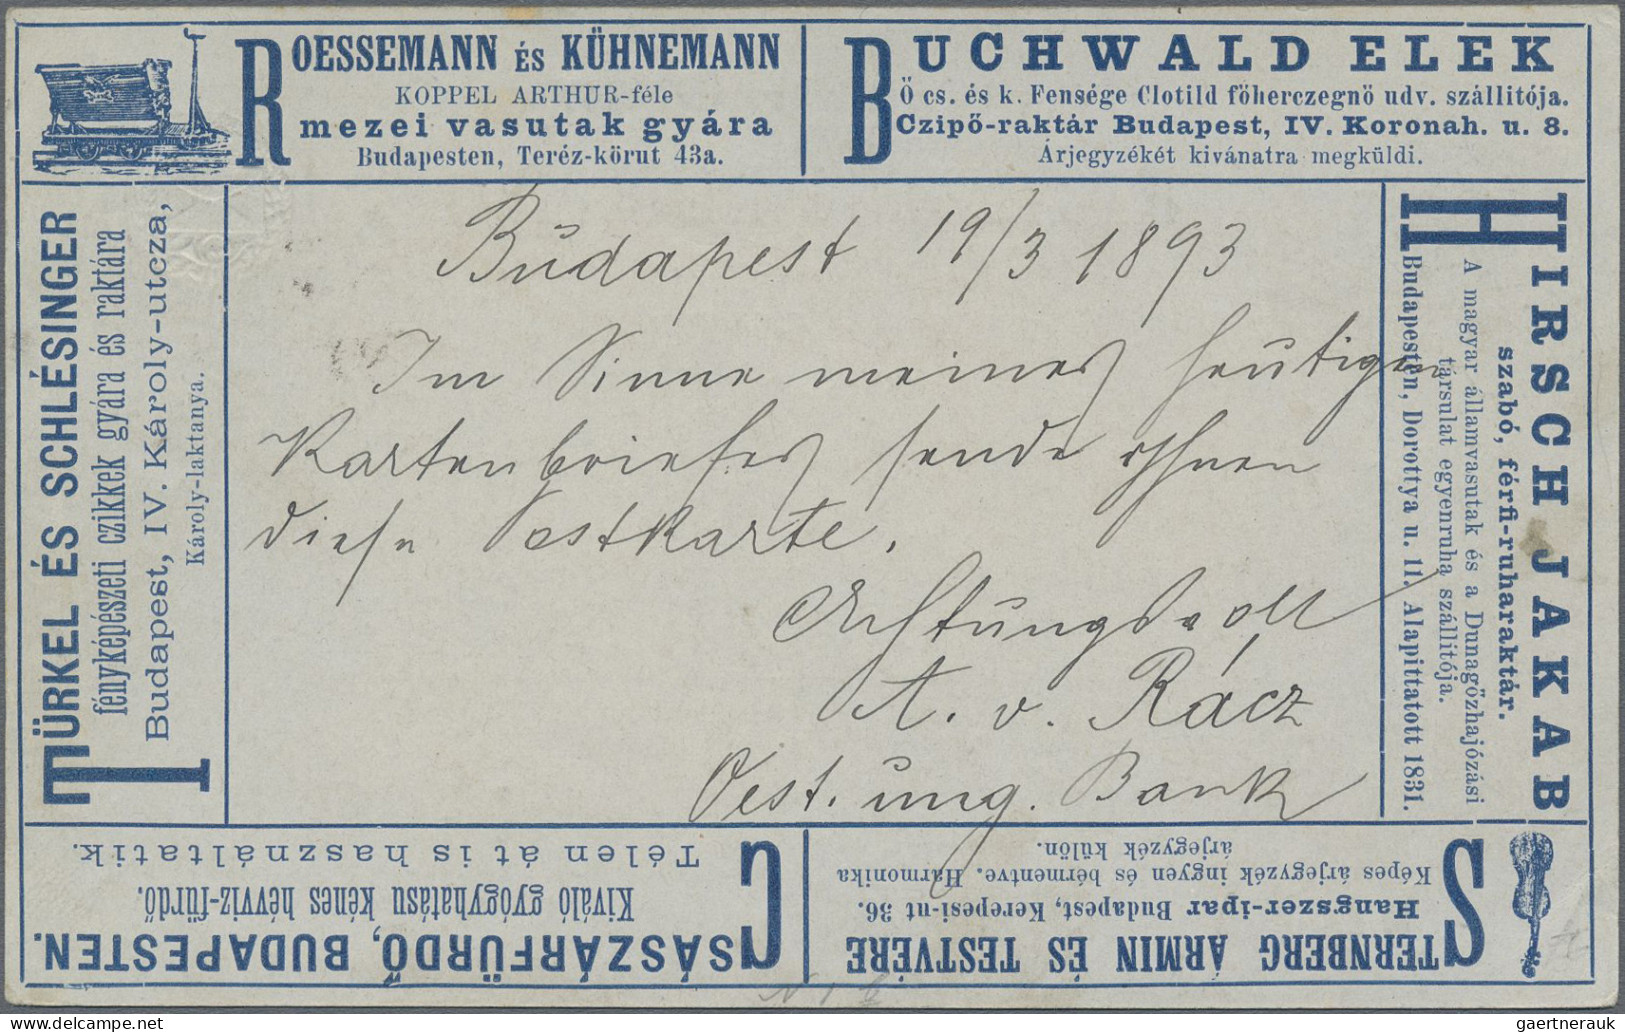 ROESSEMANN ÉS KÜHNEMANN
KOPPEL ARTHUR-féle
mezei vasutak gyára
Budapesten, Teréz-körut 43a.
BUCHWALD ELEK
Ő cs. és k. Fensége Clotild főherczegnő udv. szállitója.
Czipő-raktár Budapest, IV. Koronah. u. 8.
Árjegyzékét kivánatra megküldi.
TÜRKEL ÉS SCHLÉSINGER
fényképészeti czikkek gyára és raktára
Budapest, IV. Károly-utcza,
Károly-laktanya.
Budapest 19/3 1893
Im Sinne meines heutigen
Kartenbriefes sende Ihnen
diese Postkarte.
Achtungsvoll
A. v. Rácz
Oest. ung. Bank
HIRSCH JAKAB
szabó, férfi-ruharaktár.
A magyar államvasutak és a Dunagőzhajózási
társulat egyenruha szállitója.
Budapesten, Dorottya u. 11. Alapittatott 1831.
CSÁSZÁRFÜRDŐ, BUDAPESTEN.
Kiváló gyógyhatásu kénes hévviz-fürdő.
Télen át is használtatik.
STERNBERG ÁRMIN ÉS TESTVÉRE
Hangszer-ipar Budapest, Kerepesi-ut 36.
Képes árjegyzék ingyen és bérmentve. Harmonika
árjegyzék külön.
gaertnerauk